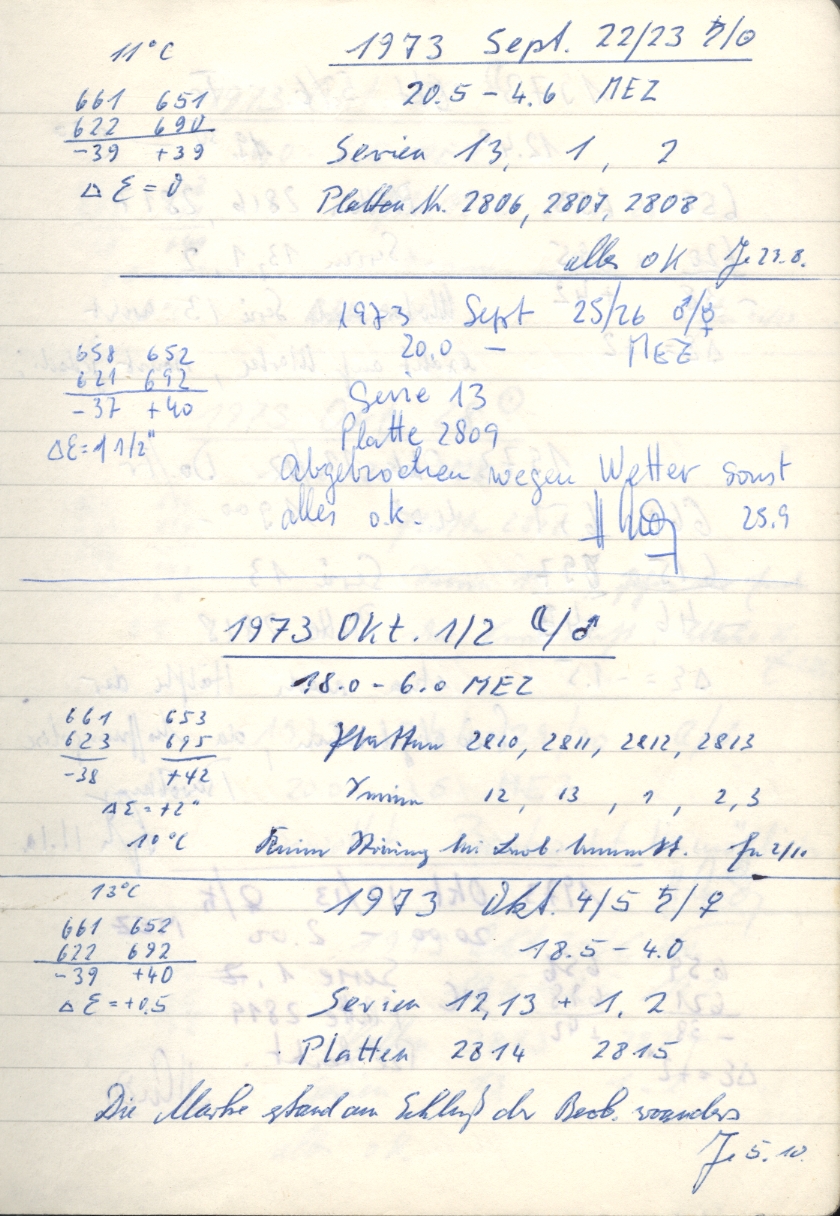 11°C
1973 Sept. 22/23 ♄/☉
661 651
20.5 – 4.6 MEZ
622 690
-39 +39
Serien 13, 1, 2
Δ Ɛ = 0
Platten Nr. 2806, 2807, 2808
alles OK Je 23.8.
1973 Sept 25/26 ♂/☿
20.0 – MEZ
658 652
621 692
-37 +40
Serie 13
ΔƐ = 1 1/2"
Platte 2809
Abgebrochen wegen Wetter sonst
alles o.k. 25.9
1973 Okt. 1/2 ☾/♂
18.0 – 6.0 MEZ
661 653
623 695
Platten 2810, 2811, 2812, 2813
-38 +42
Δ Ɛ = +2"
Serien 12, 13, 1, 2, 3
10°C
Keine Störung bei Beob. bemerkt. 2/10
13°C
1973 Okt. 4/5 ♃/♀
661 652
622 692
18.5 – 4.0
-39 +40
Δ Ɛ = +0.5
Serien 12, 13 + 1, 2
Platten 2814 2815
Die Marke stand am Schluß der Beob. woanders
Je 5.10.